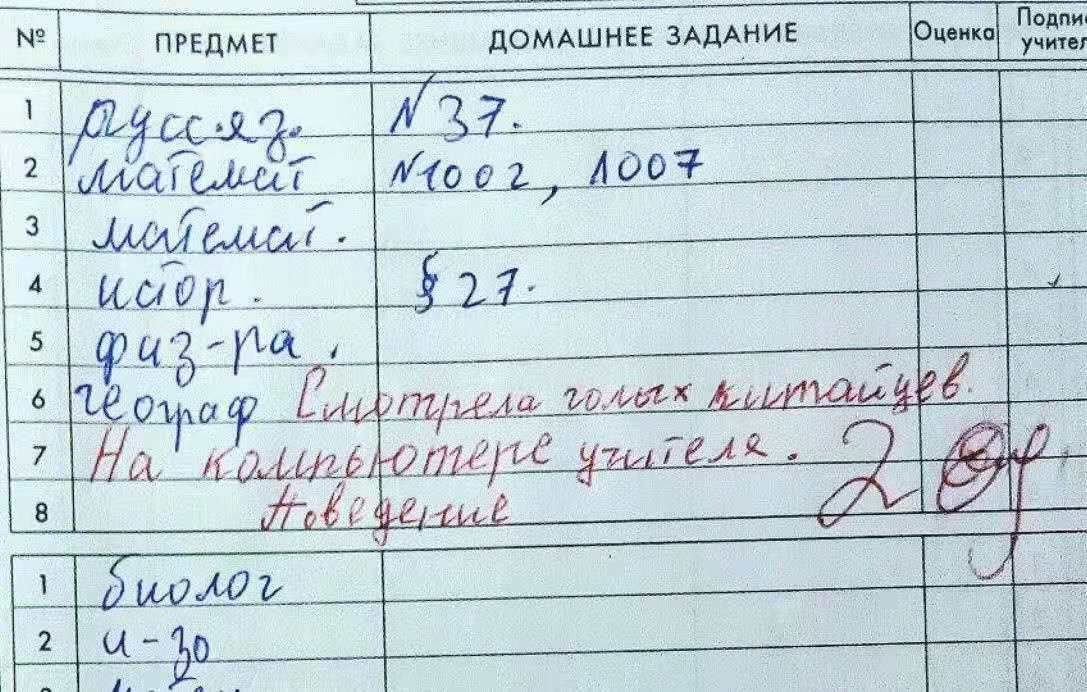 № ПРЕДМЕТ ДОМАШНЕЕ ЗАДАНИЕ Оценка Подпис учител
1 русс.яз. №37.
2 математ №1002, 1007
3 математ.
4 истор. § 27.
5 физ-ра.
6 географ Смотрела голых китайцев.
7 На компьютере учителя. 2
8 Поведение
1 биолог
2 и-зо